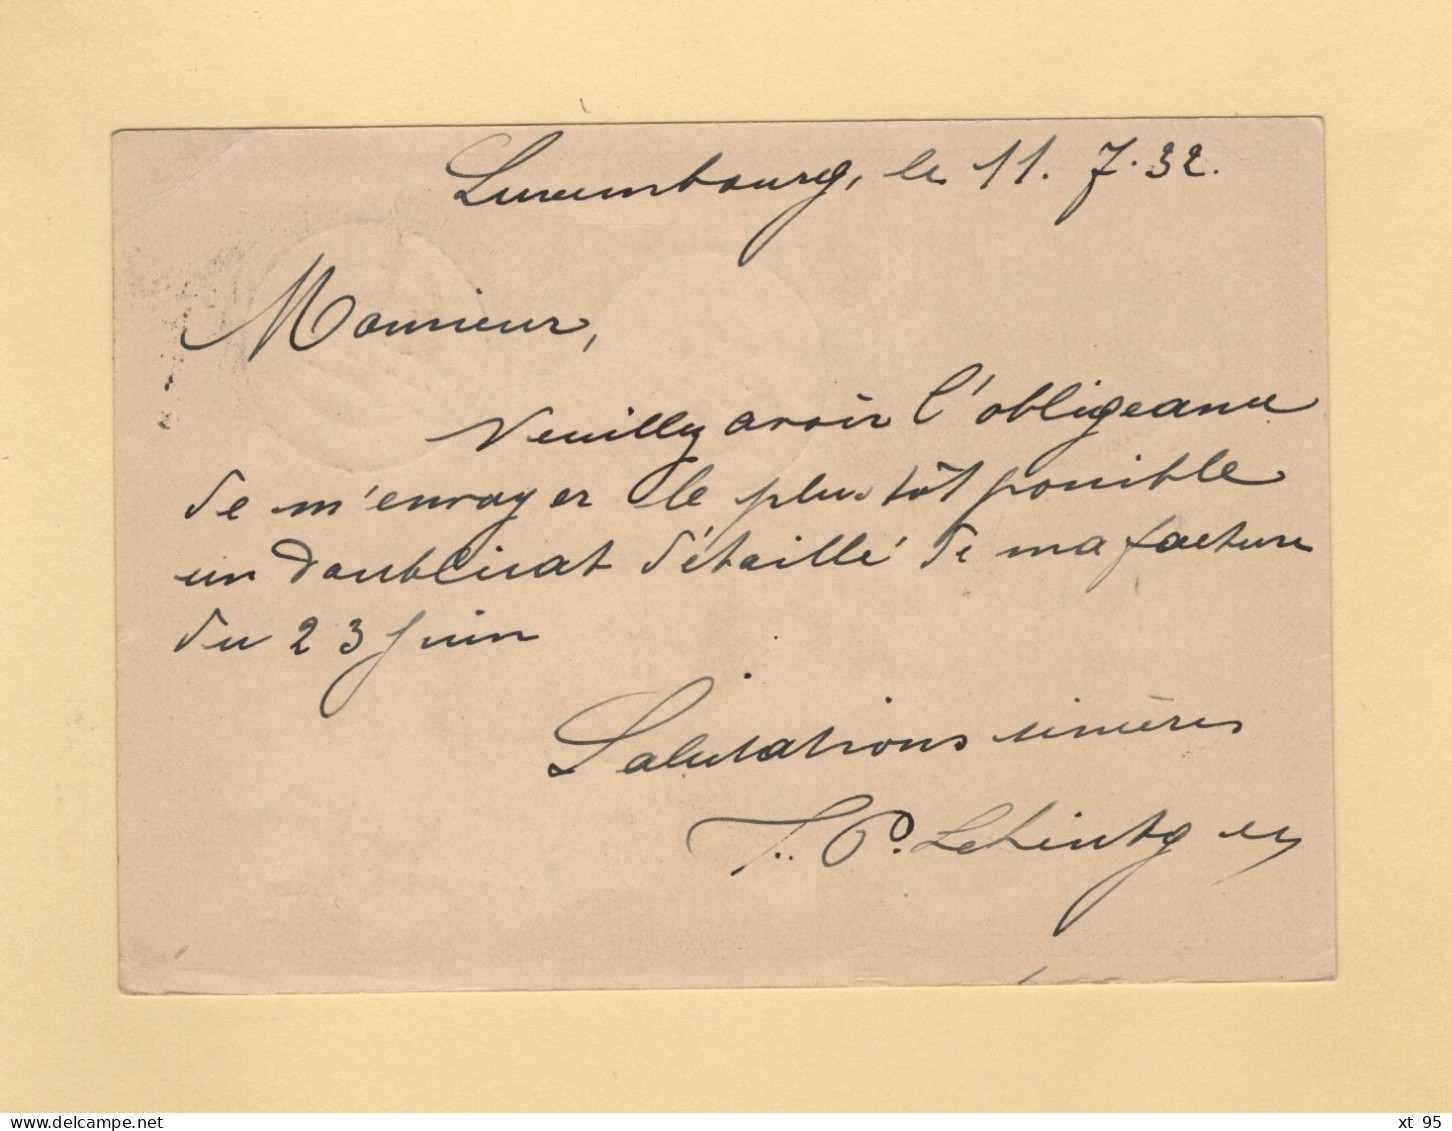 Luxembourg, le 11. 7. 32.
Monsieur,
Veuillez avoir l'obligeance
de m'envoyer le plus tôt possible
un doublicat détaillé de ma facture
du 23 juin
Salutations sincères
J. P.
delcampe.net
xt 95